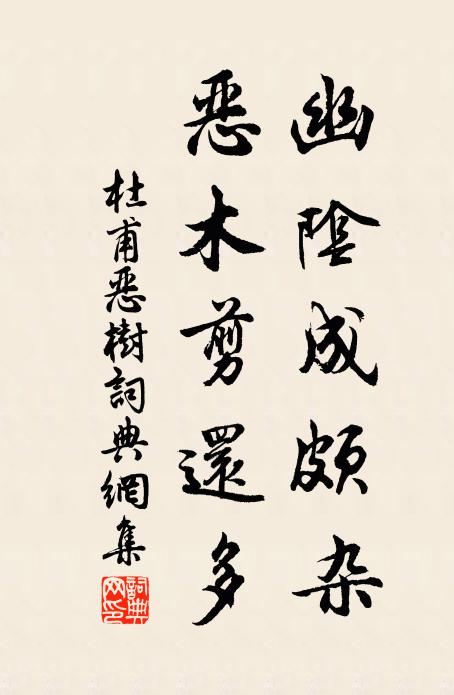 幽陰成頗杂
惡木剪還多
杜甫惡樹詞典網集
詞典網印